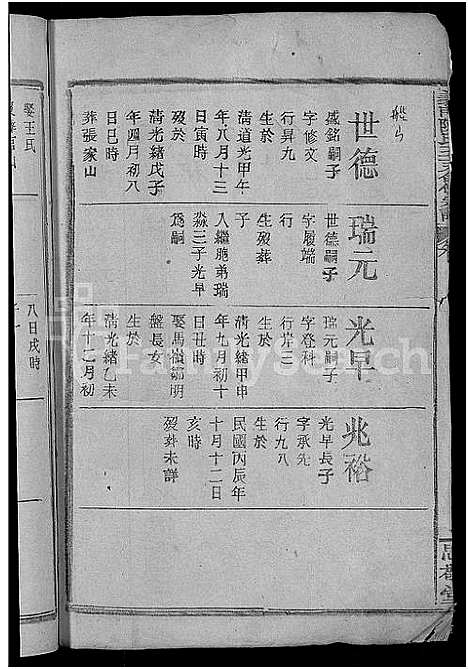 世德
盛銘嗣子
字修文
行昇九
清道光甲午
年八月十三
歿於
清光緒戊子
年四月初八
日巳時
葬張家山
瑞元
世德嗣子
字履端
行
生歿葬
子
入繼胞弟瑞
淼三子光早
爲嗣
光早
瑞元嗣子
字登科
行岸三
生於
清光緒甲申
年九月初十
日丑時
娶馬樹鄒明
盤長女
生於
清光緒乙未
年十二月初
兆裕
光早長子
字承先
行九八
生於
民國丙辰年
十月十二日
亥時
歿葬未詳
娶王氏
八日戌時
FamilySearch